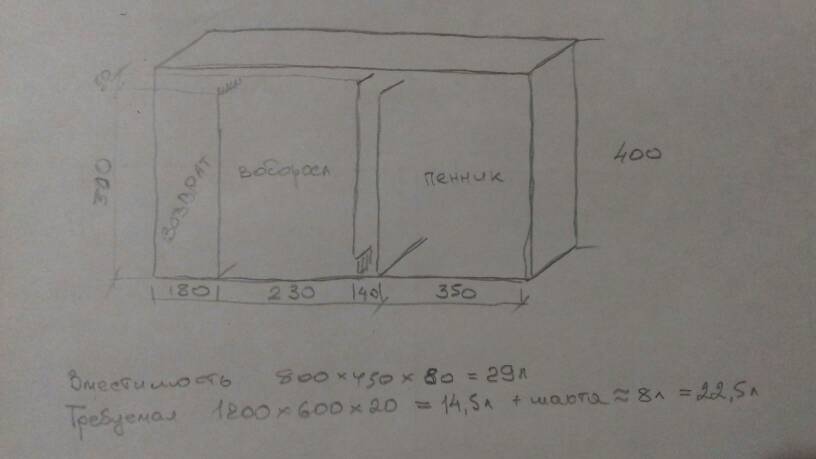 80
300
ВОЗВРАТ
водоросл
пенник
400
180 230 40 350
Вместимость 800 × 450 × 80 = 29л
Требуемая 1200 × 600 × 20 = 14,5л + шахта ≈ 8л = 22,5л